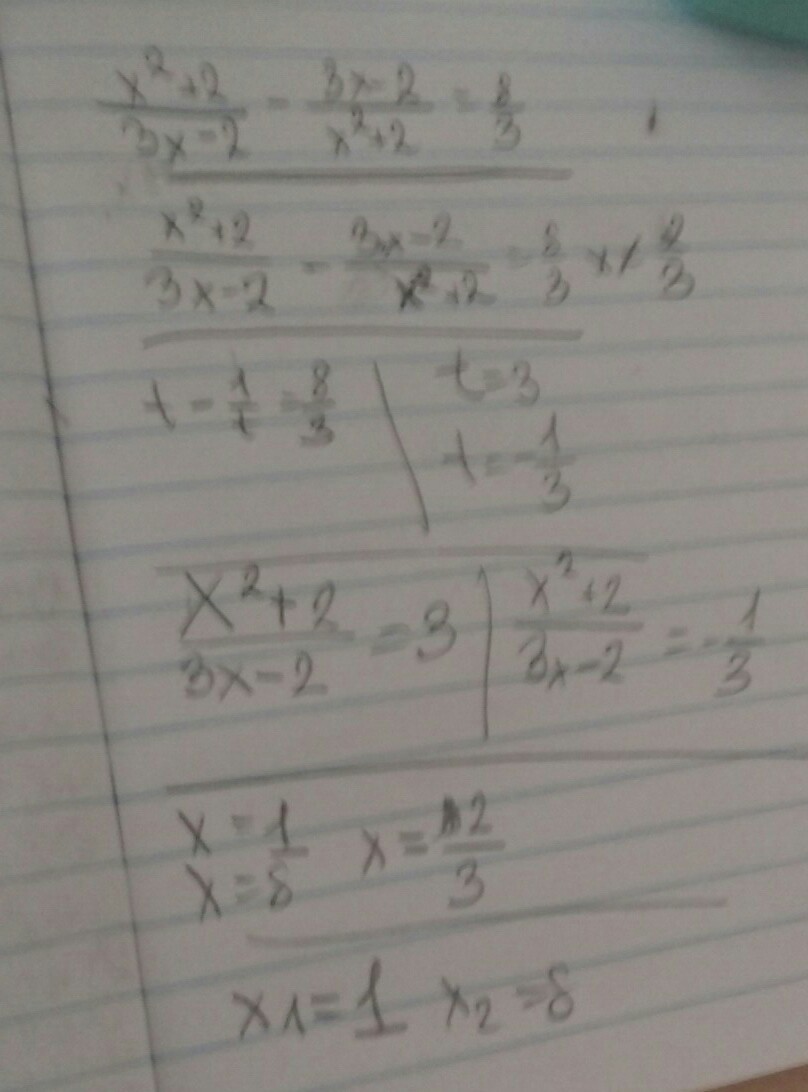 x²+2/3x-2 - 3x-2/x²+2 = 8/3
x²+2/3x-2 - 3x-2/x²+2 = 8/3 x≠2/3
t-1/t=8/3 | t=3
t=-1/3
x²+2/3x-2=3 | x²+2/3x-2=-1/3
x=1
x=8 x=2/3
x1=1 x2=8